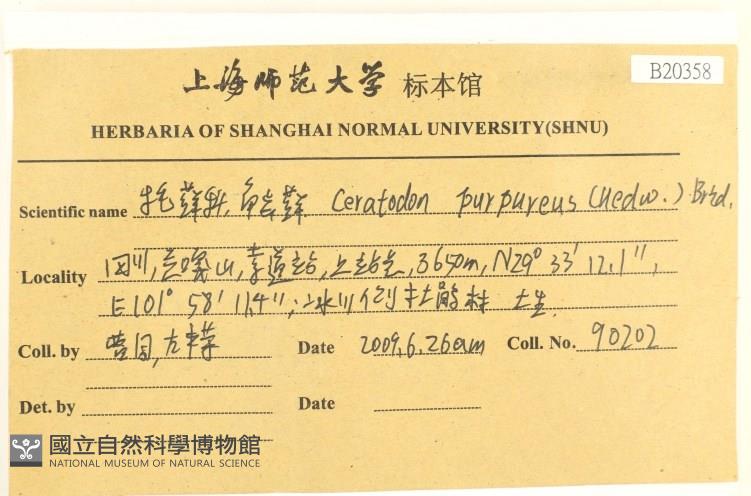 上海师范大学 标本馆
B20358
HERBARIA OF SHANGHAI NORMAL UNIVERSITY(SHNU)
Scientific name 牛毛藓科, 角齿藓 Ceratodon purpureus (Hedw.) Brid.
Locality 四川, 贡嘎山, 索道站, 上站旁, 3650m, N29° 33' 12.1",
E101° 58' 11.4"; 冰川 杜鹃林 土生
Coll. by Date 2009.6.26am Coll. No. 90202
Det. by Date
國立自然科學博物館
NATIONAL MUSEUM OF NATURAL SCIENCE